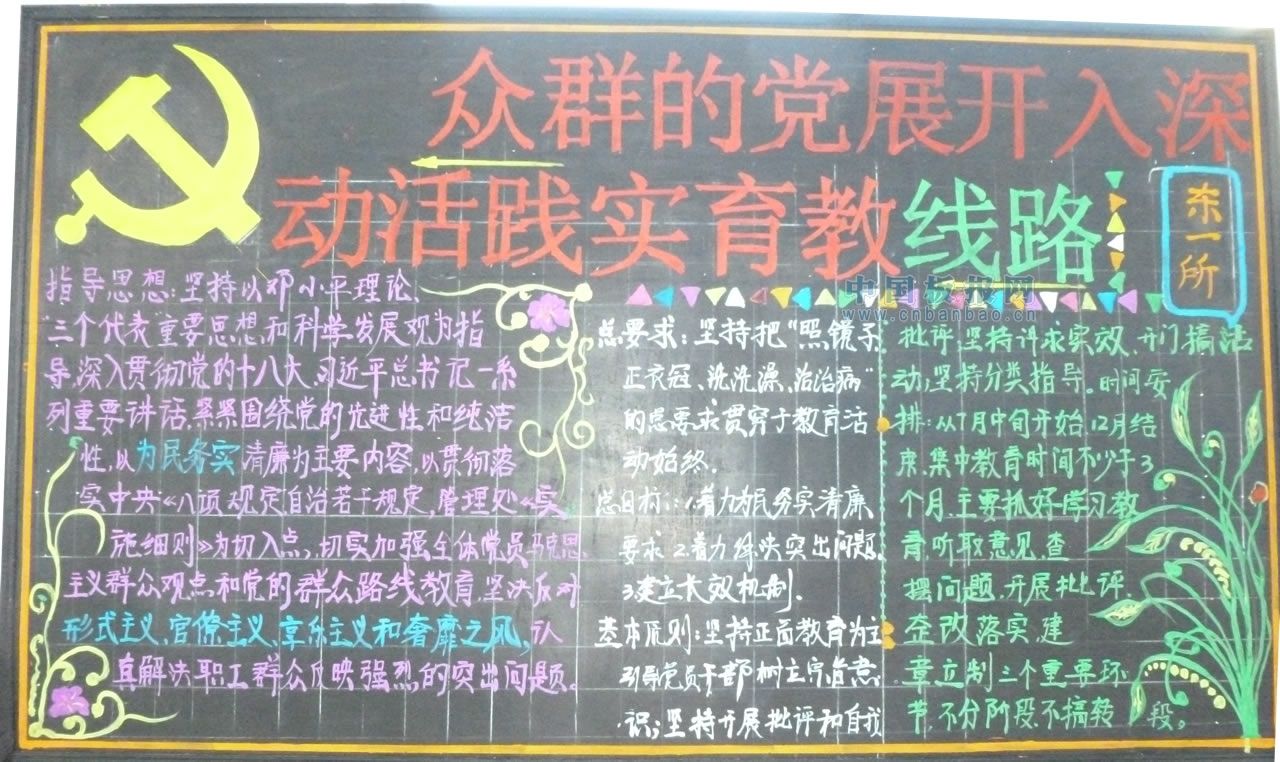 深入开展党的群众
路线教育实践活动
东一所
中国板报网
www.cnbanbao.cn
指导思想:坚持以邓小平理论、
"三个代表"重要思想和科学发展观为指
导,深入贯彻党的十八大、习近平总书记一系
列重要讲话,紧紧围绕党的先进性和纯洁
性,以为民务实清廉为主要内容,以贯彻落
实中央《八项规定自治若干规定,管理处《实
施细则》为切入点,切实加强全体党员马克思
主义群众观点和党的群众路线教育,坚决反对
形式主义、官僚主义、享乐主义和奢靡之风,认
真解决职工群众反映强烈的突出问题。
总要求:坚持把"照镜子
正衣冠、洗洗澡、治治病"
的总要求贯穿于教育活
动始终.
总目标:1.着力为民务实清廉
要求2.着力解决突出问题.
3.建立长效机制.
基本原则:坚持正面教育为主
引导党员干部树立宗旨意
识;坚持开展批评和自我
批评,坚持讲求实效、开门搞活
动;坚持分类指导。时间安
排:从7月中旬开始,12月结
束,集中教育时间不少于3
个月.主要抓好学习教
育,听取意见,查
摆问题,开展批评,
整改落实,建
章立制三个重要环
节,不分阶段不搞转段;